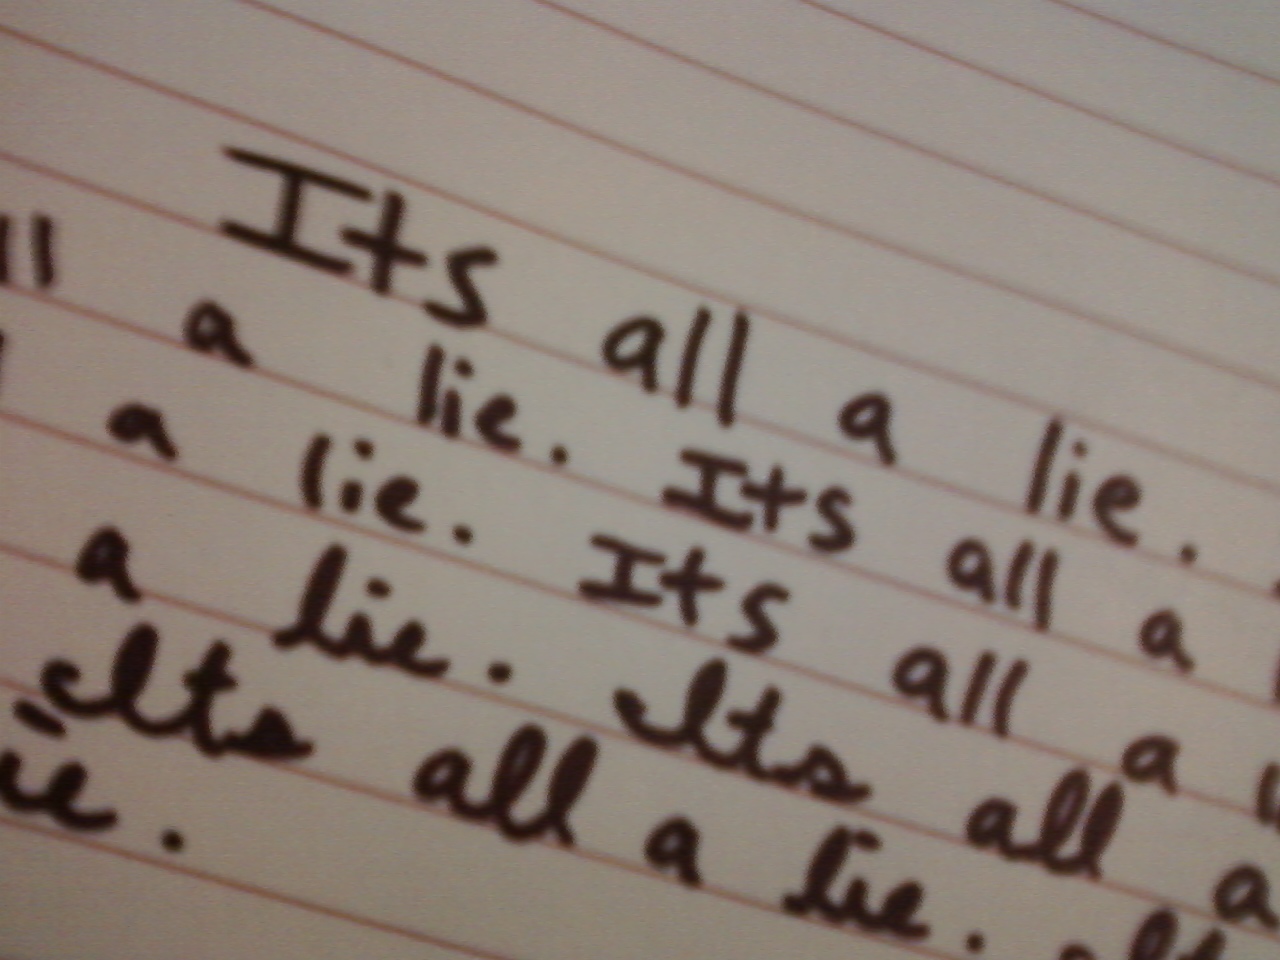 Its all a lie.
ll a lie. Its all a
a lie. Its all a
a lie. Its all a
Its all a lie.
ie.